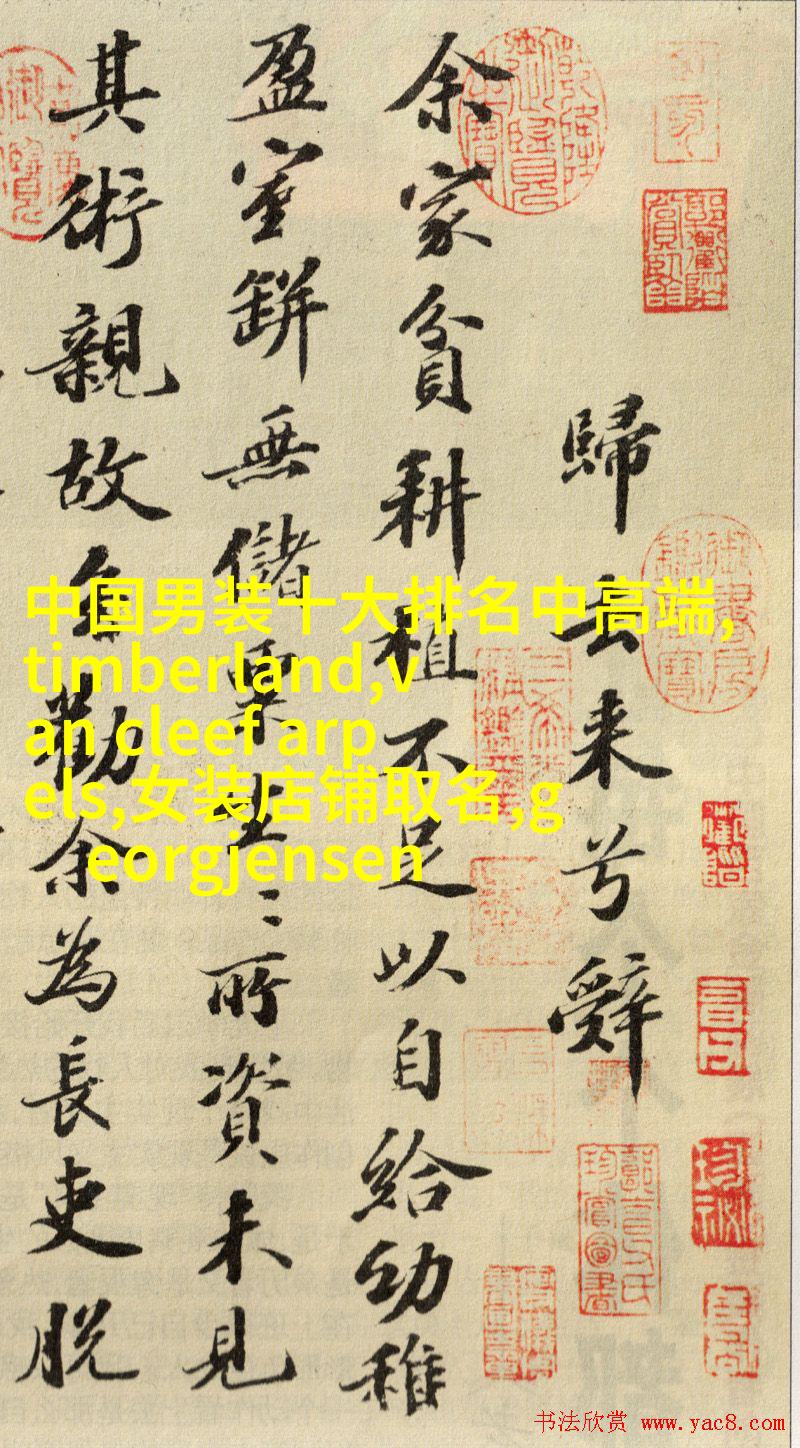 歸去来兮辭
余家貧耕植不足以自給幼稚
盈室缾無儲粟生〻所資未見
其術親故多勸余為長吏脱
中国男装十大排名中高端,
timberland,v
an cleef arp
els,女装店铺取名,g
eorgjensen
书法欣赏 www.yac8.com